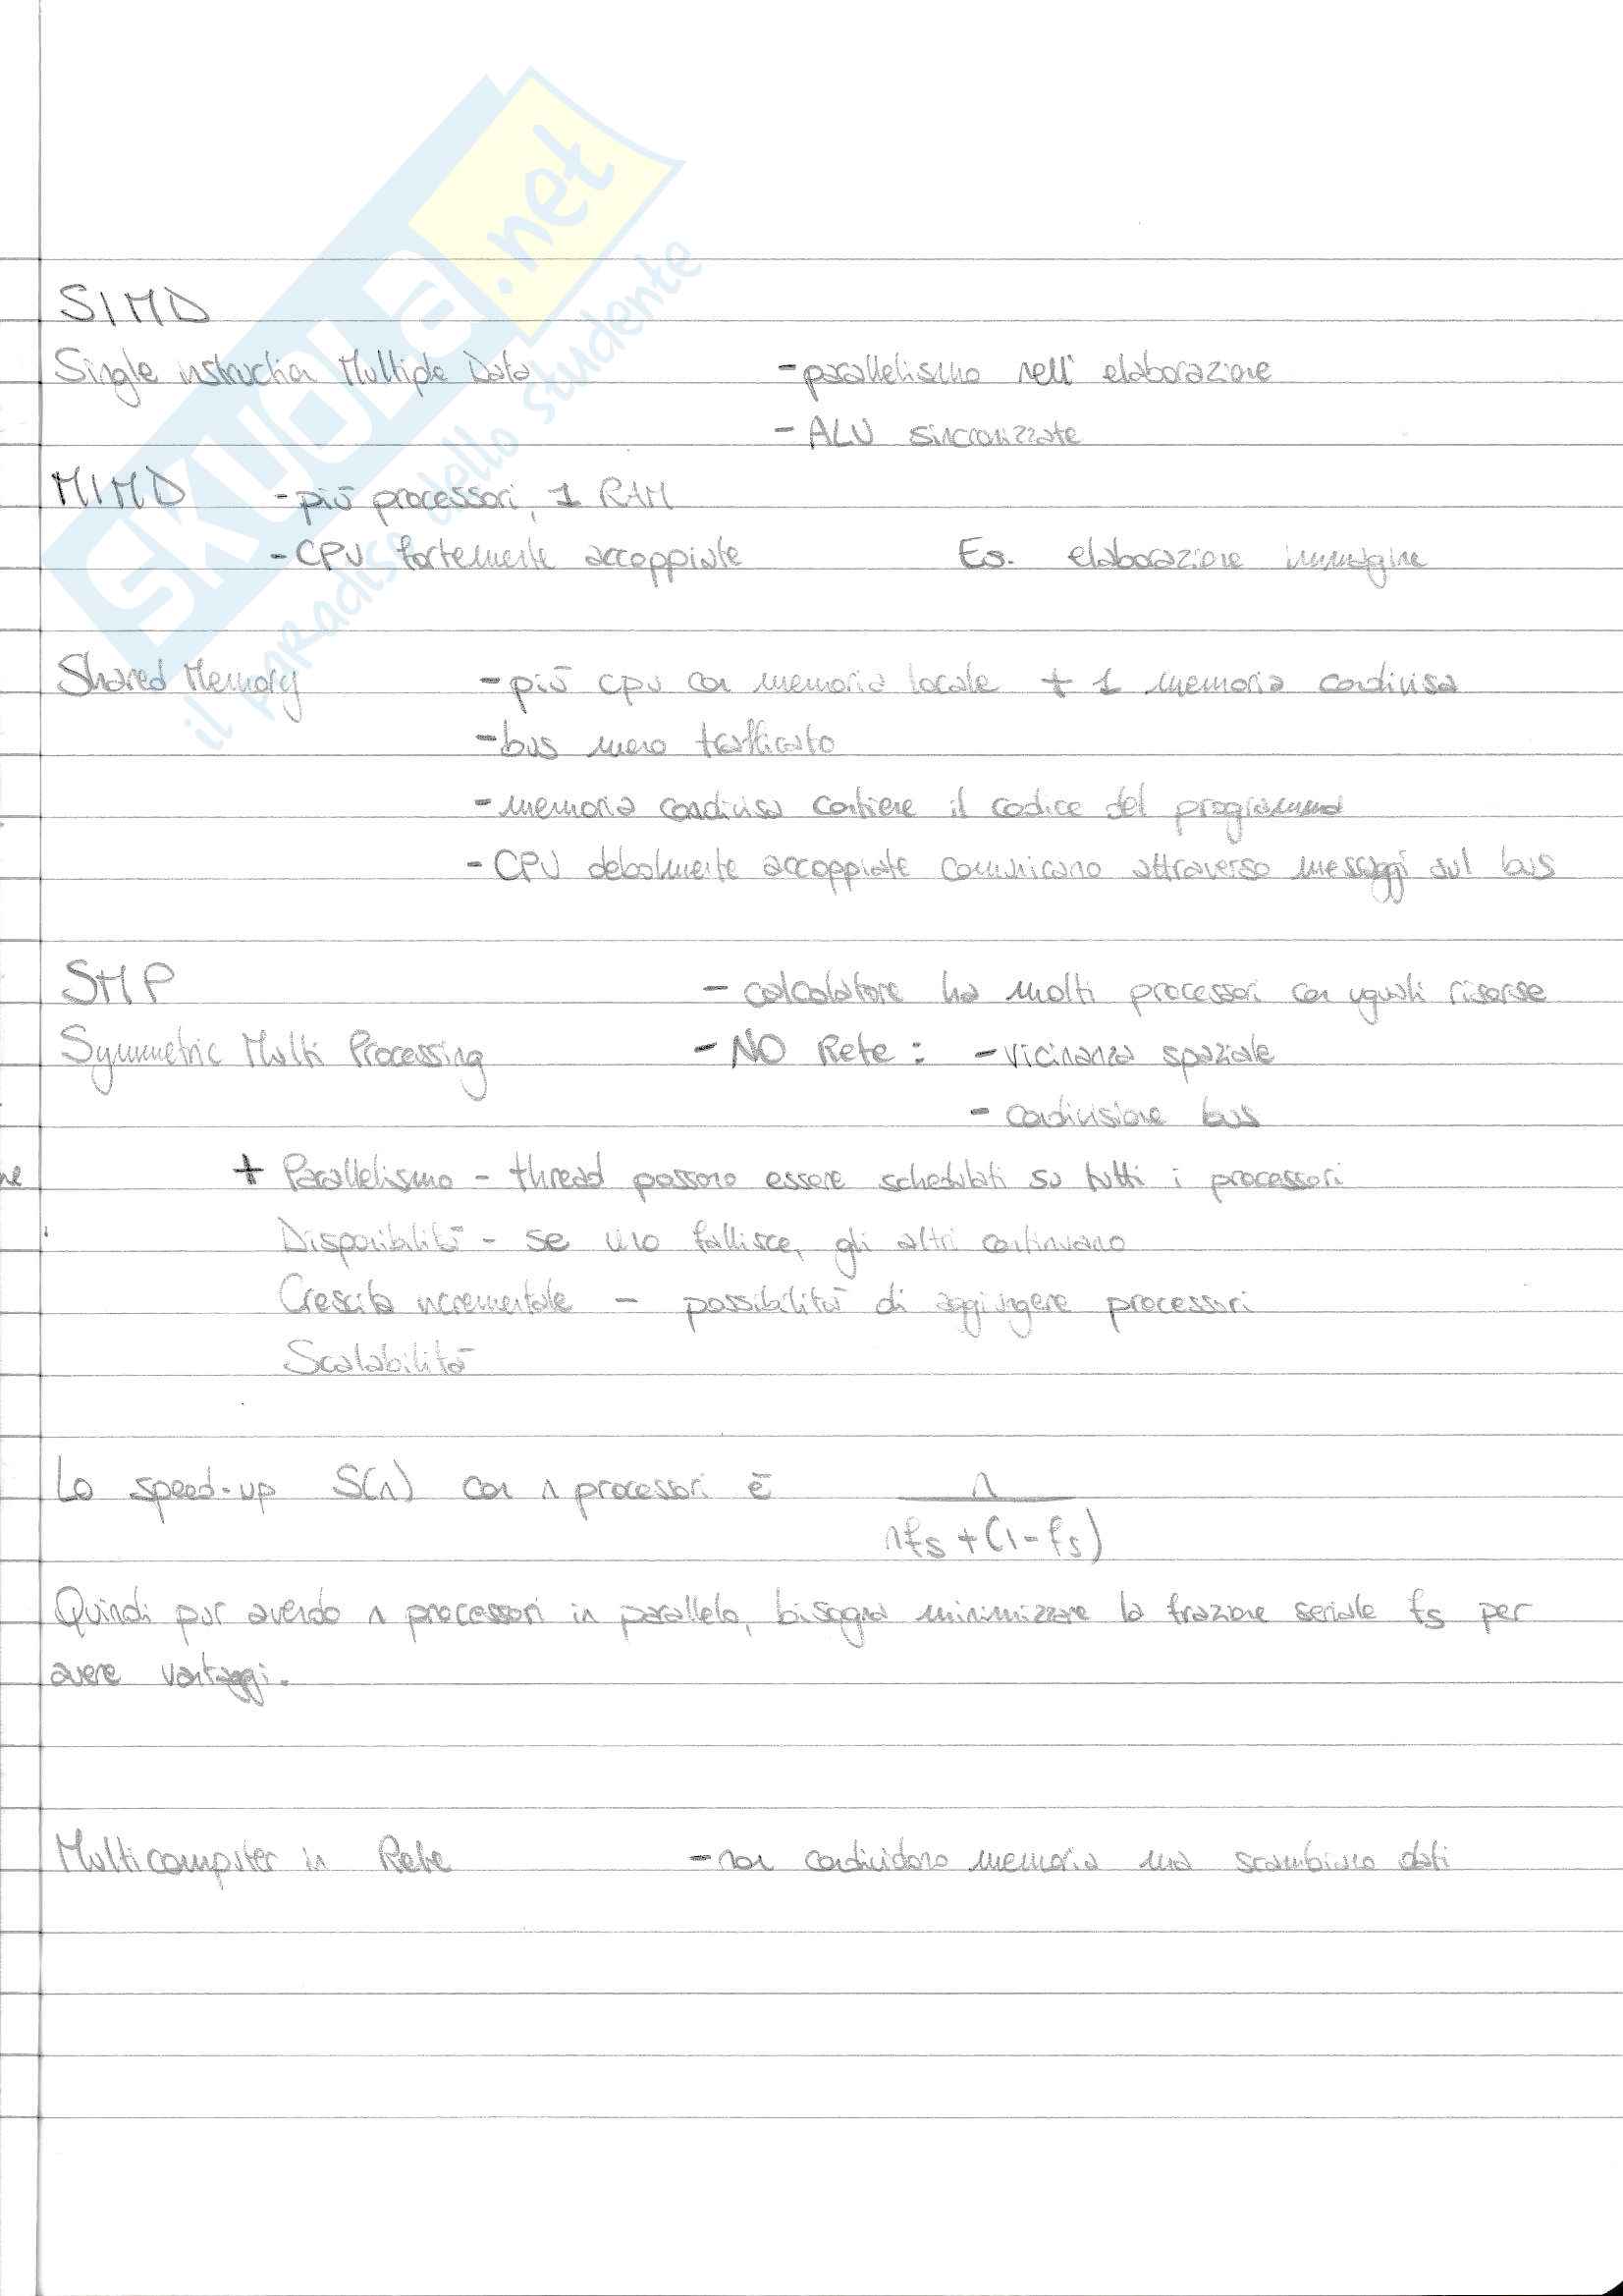 SKUOLA.net
il paradiso dello studente
SIMD
Single instruction Multiple Data - parallelismo nell' elaborazione
- ALU sincronizzate
MIMD - più processori, 1 RAM
- CPU fortemente accoppiate Es. elaborazione immagine
Shared Memory - più cpu con memoria locale + 1 memoria condivisa
- bus meno trafficato
- memoria condivisa contiene il codice del programma
- CPU debolmente accoppiate comunicano attraverso messaggi sul bus
SMP - calcolatore ha molti processori con uguali risorse
Symmetric Multi Processing - NO Rete: - vicinanza spaziale
- condivisione bus
+ Parallelismo - thread possono essere schedulati su tutti i processori
Disponibilità - se uno fallisce, gli altri continuano
Crescita incrementale - possibilità di aggiungere processori
Scalabilità
Lo speed-up S(n) con n processori è n
nfs + (1-fs)
Quindi pur avendo n processori in parallelo, bisogna minimizzare la frazione seriale fs per
avere vantaggi.
Multicomputer in Rete - non condividono memoria ma scambiano dati